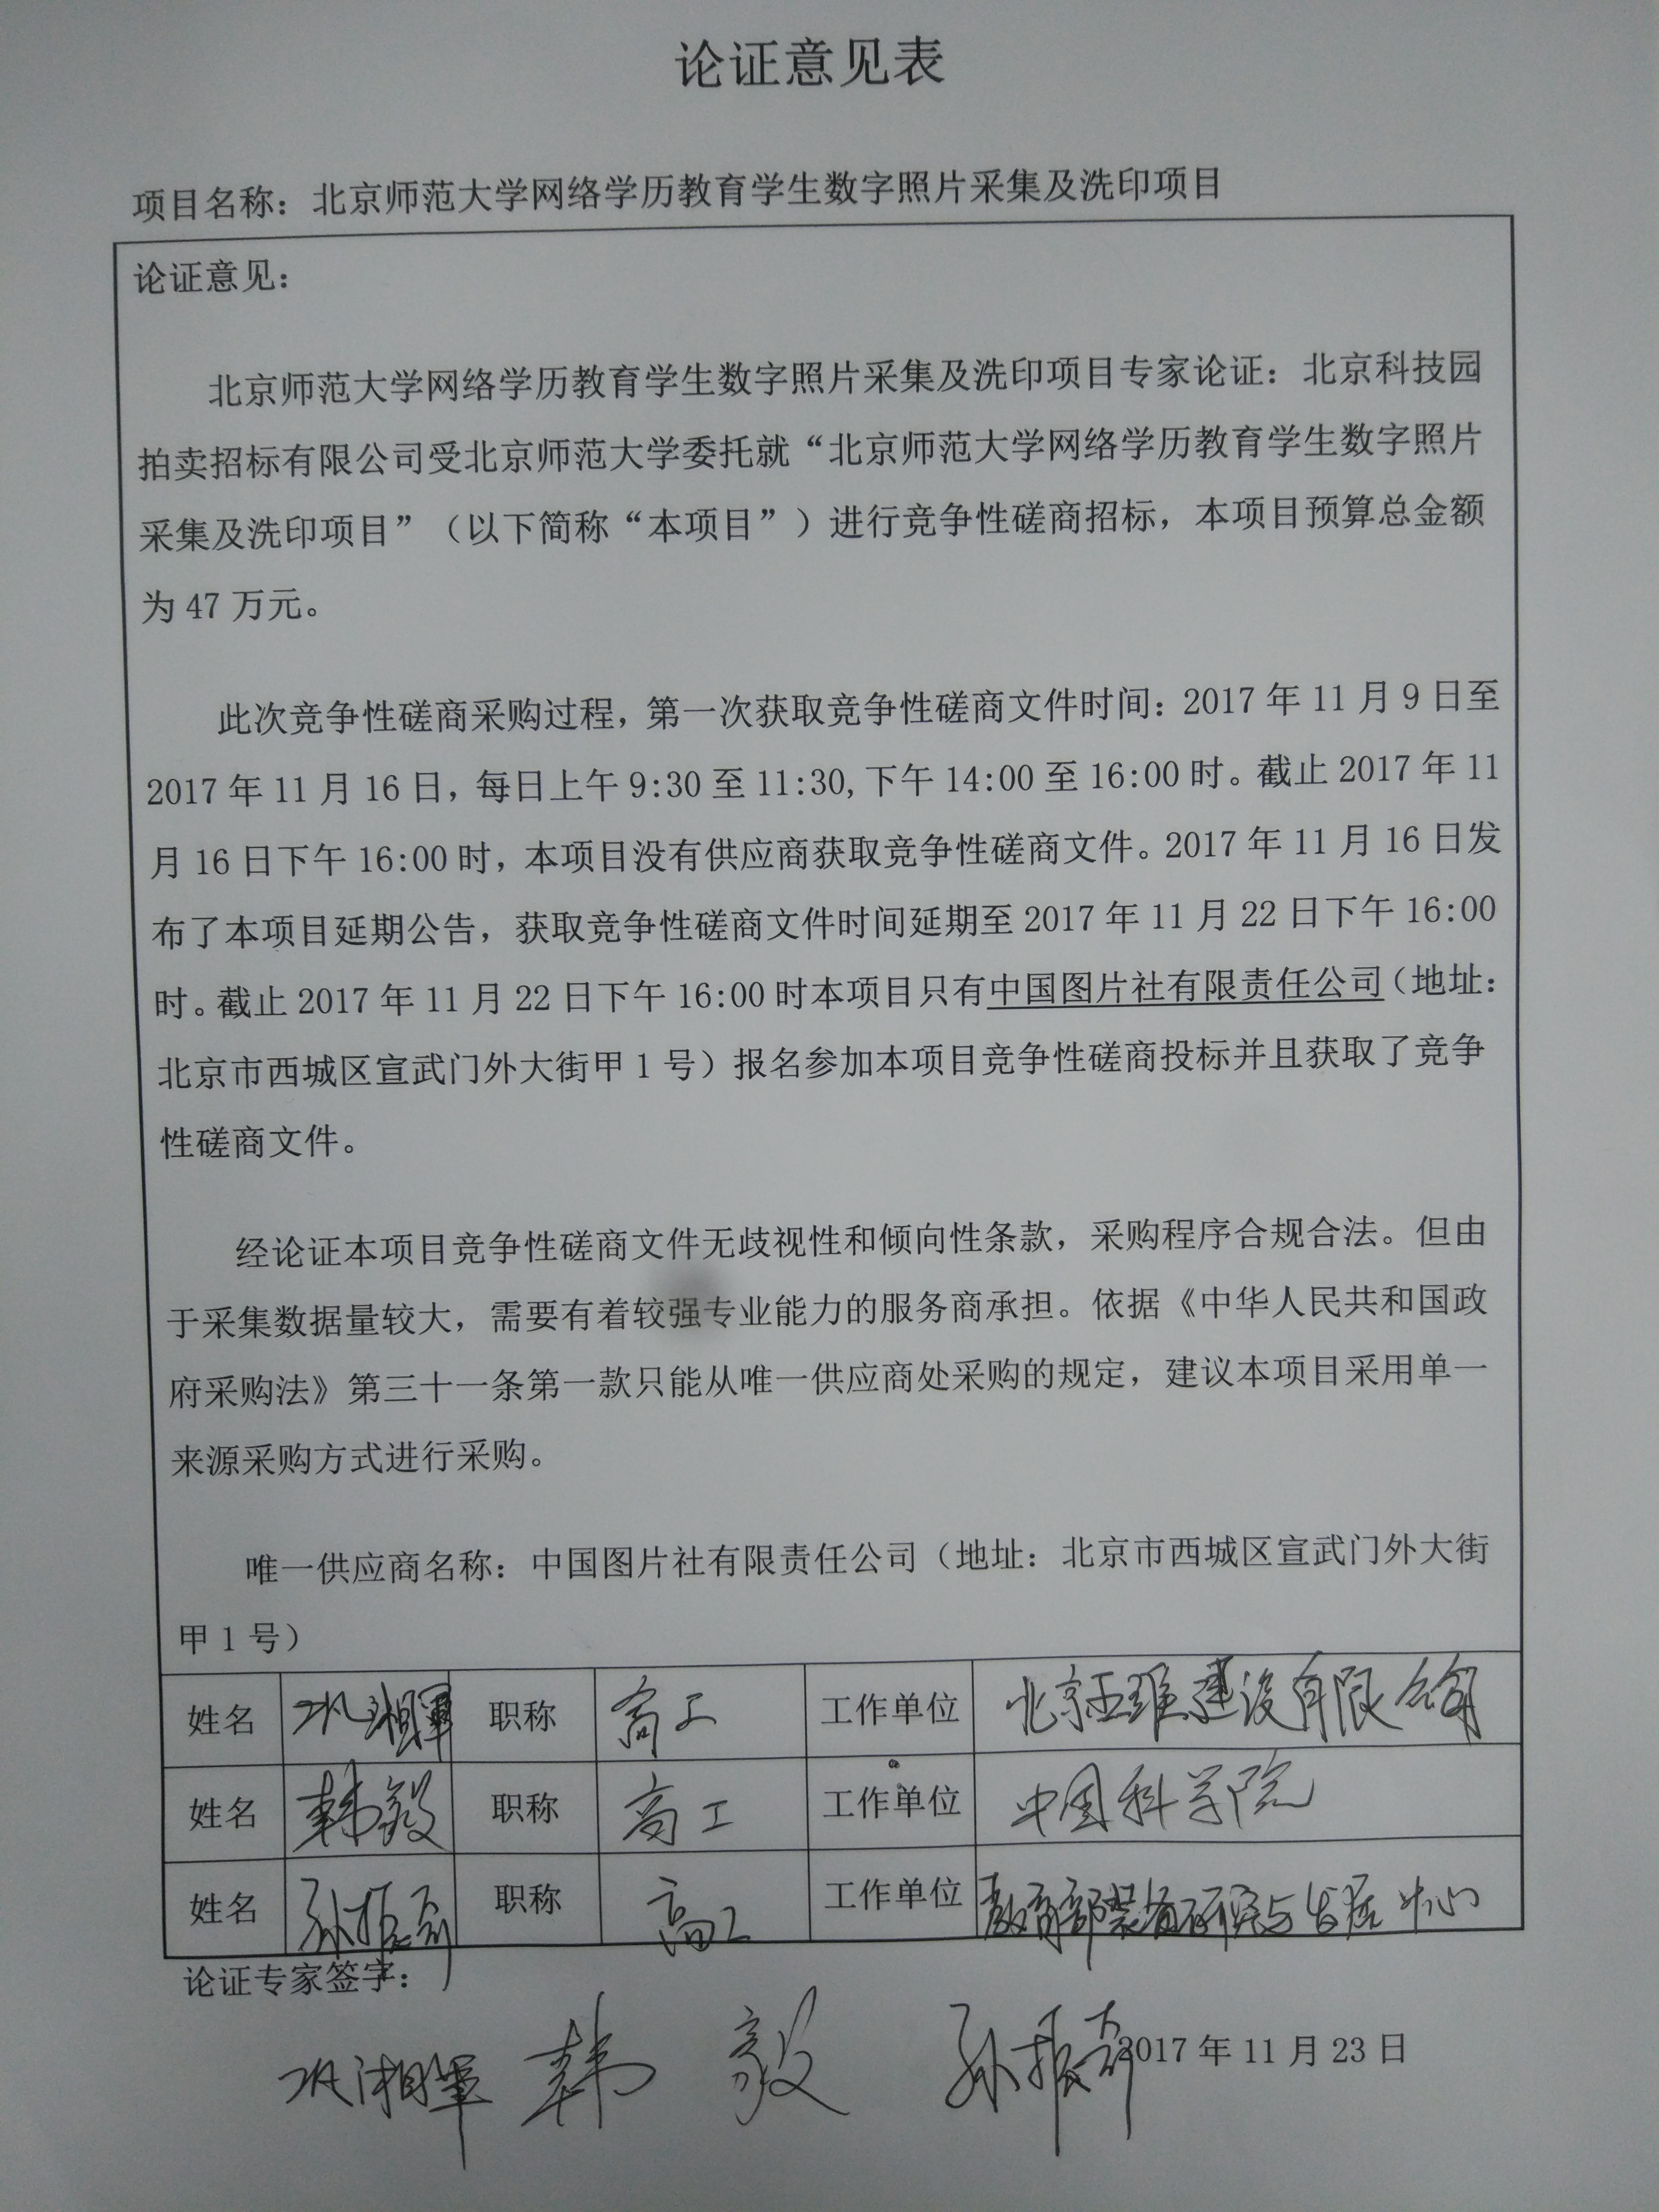 论证意见表
项目名称：北京师范大学网络学历教育学生数字照片采集及洗印项目
论证意见：
北京师范大学网络学历教育学生数字照片采集及洗印项目专家论证：北京科技园
拍卖招标有限公司受北京师范大学委托就“北京师范大学网络学历教育学生数字照片
采集及洗印项目”（以下简称“本项目”）进行竞争性磋商招标，本项目预算总金额
为 47 万元。
此次竞争性磋商采购过程，第一次获取竞争性磋商文件时间：2017 年 11 月 9 日至
2017 年 11 月 16 日，每日上午 9:30 至 11:30,下午 14:00 至 16:00 时。截止 2017 年 11
月 16 日下午 16:00 时，本项目没有供应商获取竞争性磋商文件。2017 年 11 月 16 日发
布了本项目延期公告，获取竞争性磋商文件时间延期至 2017 年 11 月 22 日下午 16:00
时。截止 2017 年 11 月 22 日下午 16:00 时本项目只有中国图片社有限责任公司（地址：
北京市西城区宣武门外大街甲 1 号）报名参加本项目竞争性磋商投标并且获取了竞争
性磋商文件。
经论证本项目竞争性磋商文件无歧视性和倾向性条款，采购程序合规合法。但由
于采集数据量较大，需要有着较强专业能力的服务商承担。依据《中华人民共和国政
府采购法》第三十一条第一款只能从唯一供应商处采购的规定，建议本项目采用单一
来源采购方式进行采购。
唯一供应商名称：中国图片社有限责任公司（地址：北京市西城区宣武门外大街
甲 1 号）
姓名 职称 高工 工作单位 北京 建设有限公司
姓名 韩毅 职称 高工 工作单位 中国科学院
姓名 孙振奇 职称 高工 工作单位 教育部装备研究与发展中心
论证专家签字：
韩毅 孙振奇 2017 年 11 月 23 日